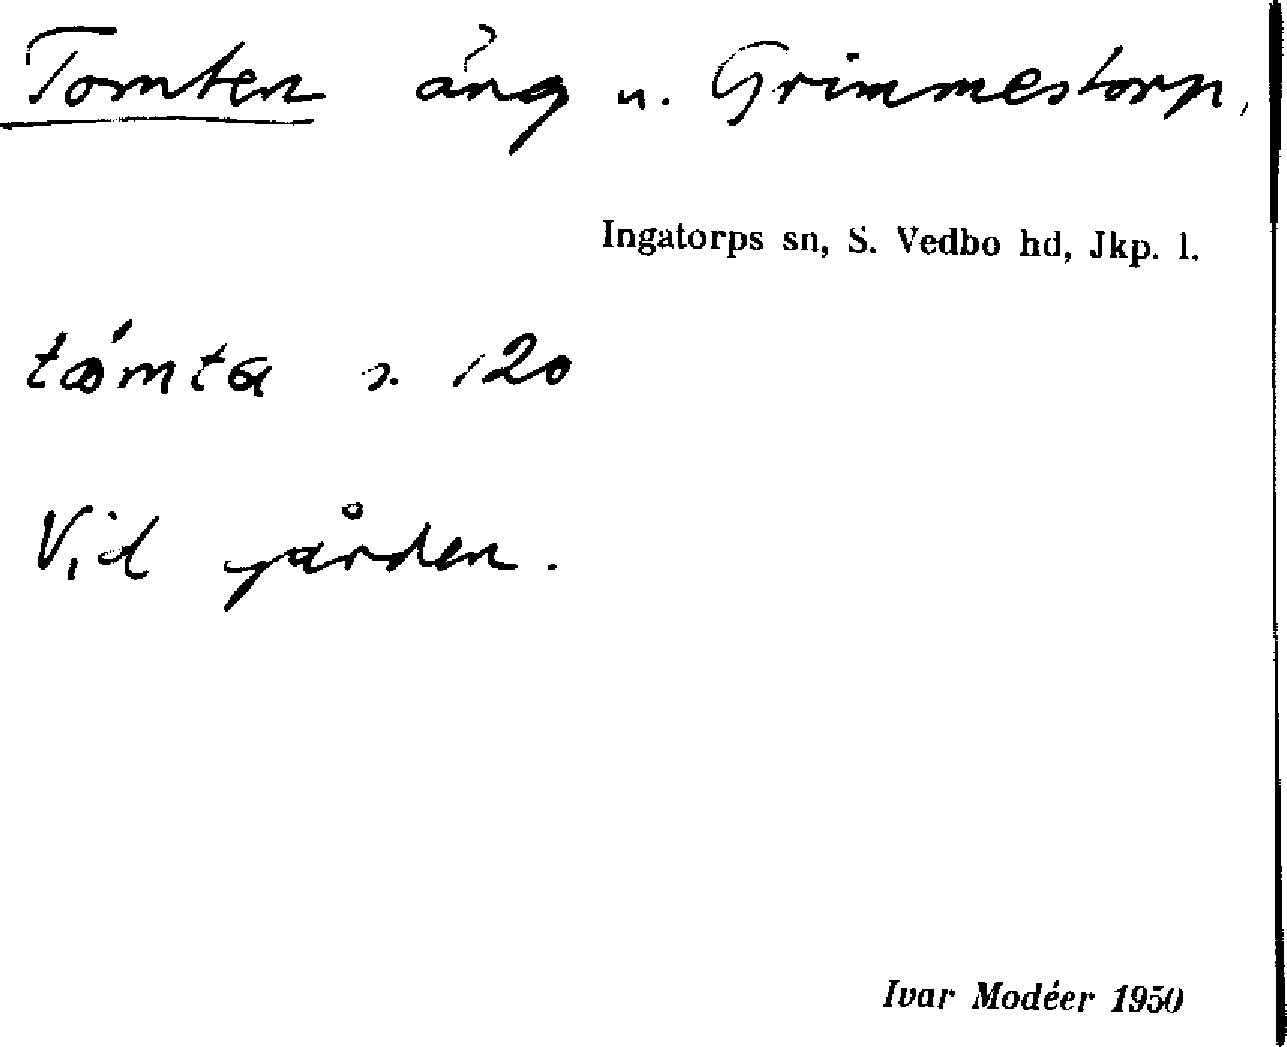 Tomten äng u. Grimmestorp,
Ingatorps sn, S. Vedbo hd, Jkp. l.
s. 120
Vid gården.
Ivar Modéer 1950